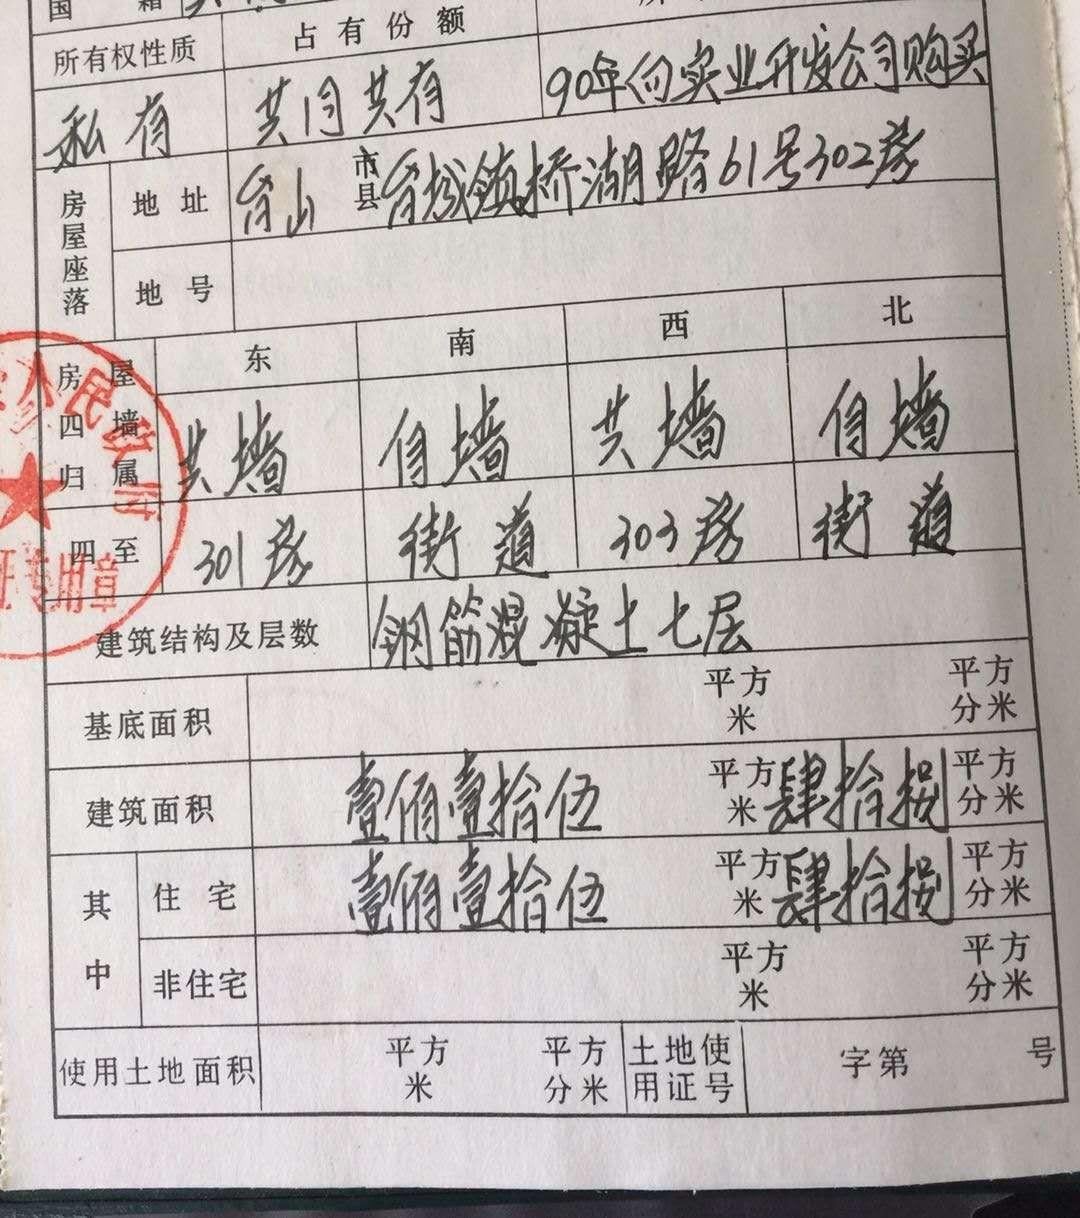 国 籍
所有权性质 占有份额
私有 共同共有 90年向实业开发公司购买
房屋座落 地址 台山 市县 台城镇桥湖路61号302房
地号
房屋四墙归属 东 南 西 北
共墙 自墙 共墙 自墙
四至 301房 街道 303房 街道
建筑结构及层数 钢筋混凝土七层
基底面积 平方米 平方分米
建筑面积 壹佰壹拾伍 平方米 肆拾捌 平方分米
其中 住宅 壹佰壹拾伍 平方米 肆拾捌 平方分米
非住宅 平方米 平方分米
使用土地面积 平方米 平方分米 土地使用证号 字第 号
人民政府
证专用章